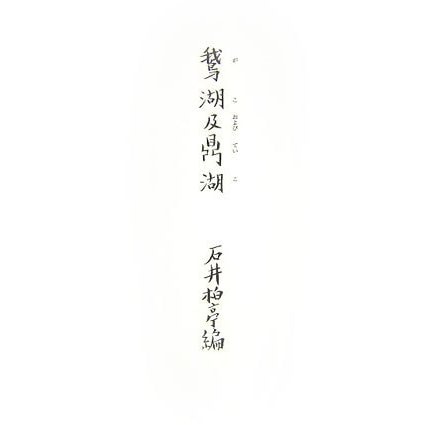 鵞湖及鼎湖
が こ および てい こ
石井柏亭編